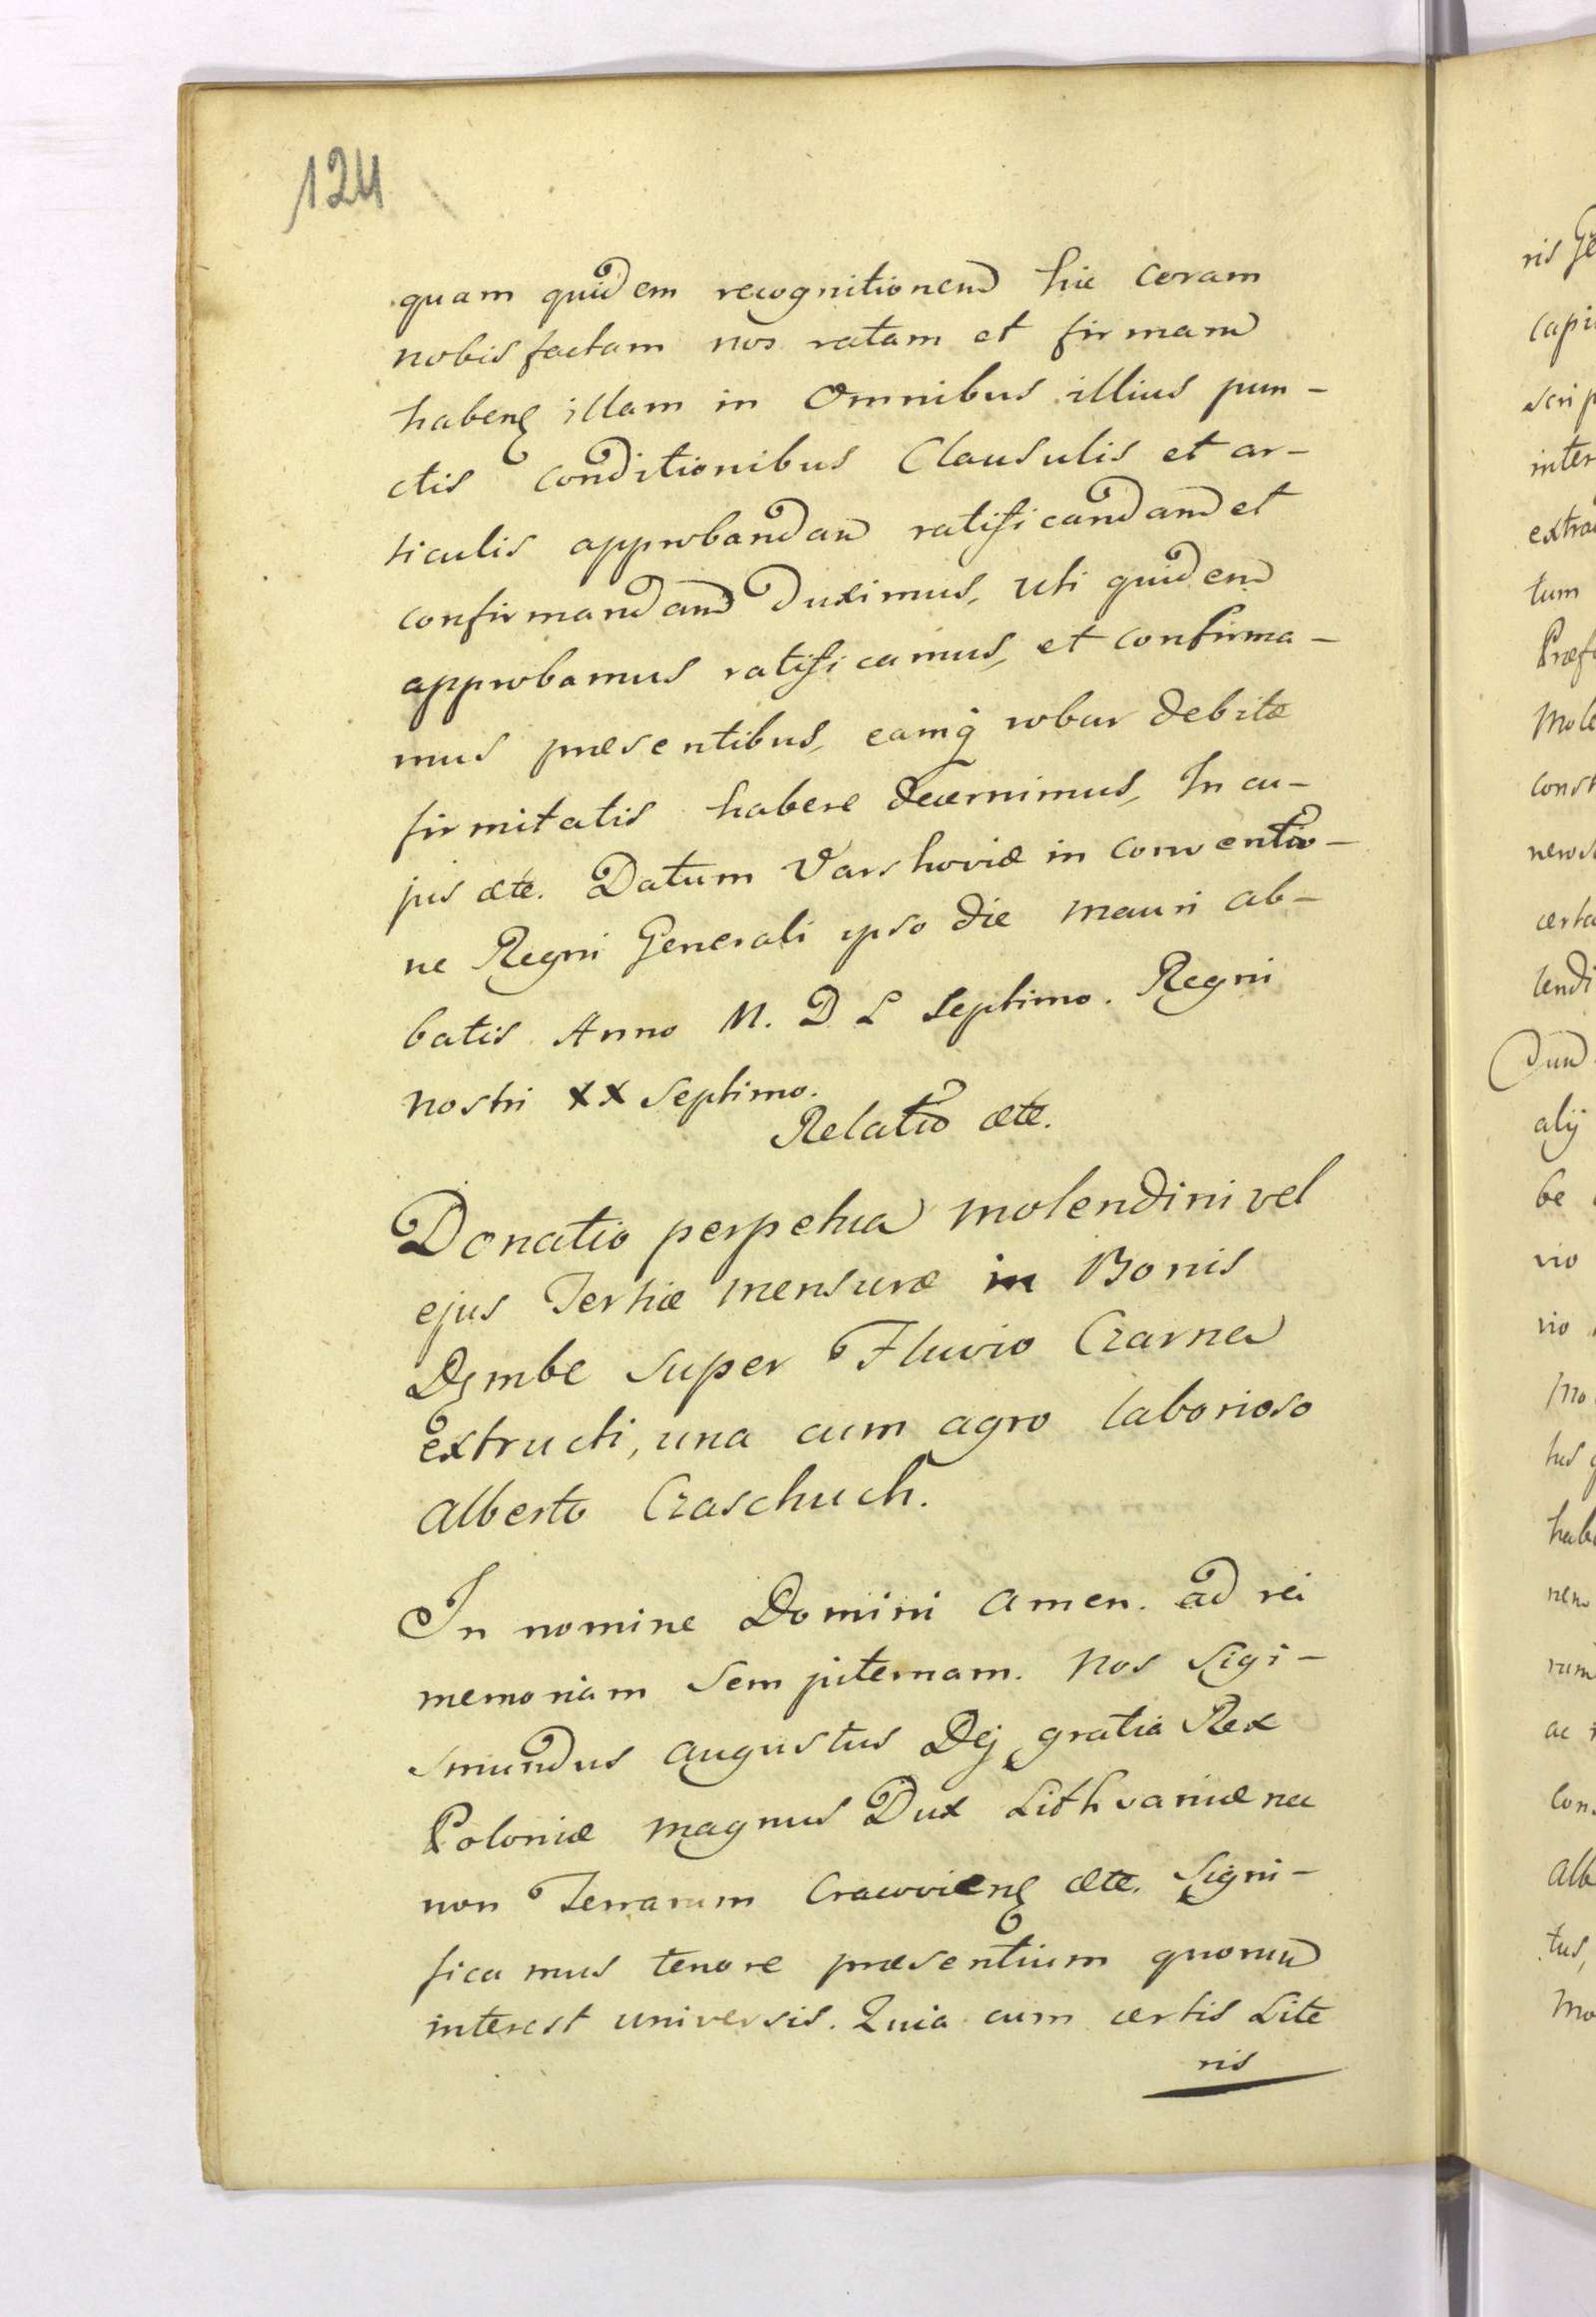 124
quam quidem recognitionem hic coram
nobis factam nos ratam et firmam
habenę illam in omnibus illius pun-
ctis conditionibus Clausulis et ar-
ticulis approbandam ratificandam et
confirmandam duximus, uti quidem
approbamus ratificamus, et confirma-
mus præsentibus, eamq robur debitæ
firmitatis habere decernimus, In cu-
jus ætc. Datum Varshoviæ in conventio-
ne Regni Generali ipso die Mauri ab-
batis Anno M. D L septimo. Regni
nostri XX septimo.
Relatio ætc.
Donatio perpetua molendini vel
ejus Tertiæ mensuræ in Bonis
Dęmbe super Fluvio Czarna
extructi, una cum agro laborioso
Alberto Czaschuch.
In nomine Domini amen. ad rei
memoriam sempiternam. Nos Sigi-
smundus Augustus Dej gratia Rex
Poloniæ magnus Dux Lithvaniæ nec
non Terrarum Cracovienę ætc. Signi-
ficamus tenore præsentium quorum
interest universis. Quia cum certis Lite
ris